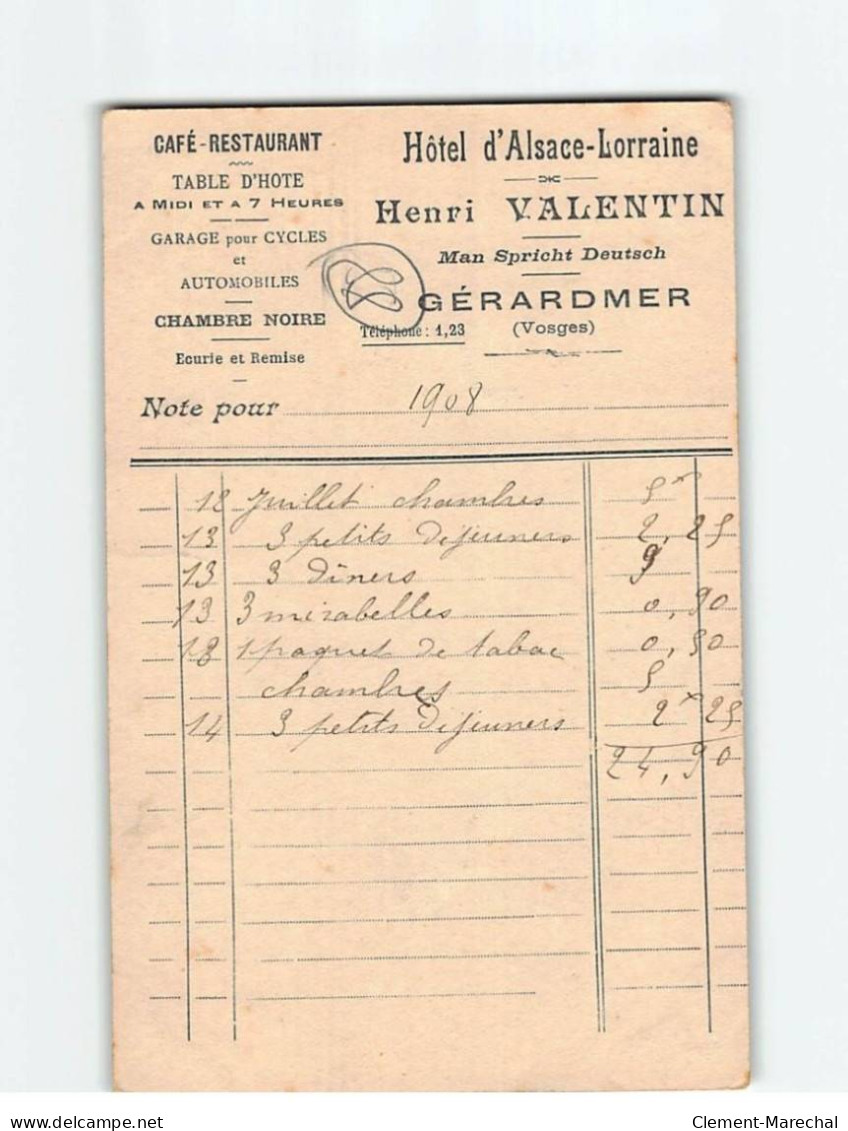 CAFÉ-RESTAURANT
TABLE D'HOTE
A MIDI ET A 7 HEURES
GARAGE pour CYCLES
et
AUTOMOBILES
CHAMBRE NOIRE
Ecurie et Remise
Hôtel d'Alsace-Lorraine
Henri VALENTIN
Man Spricht Deutsch
GÉRARDMER
Téléphone : 1,23
(Vosges)
Note pour 1908
12 Juillet chambres 5
13 3 petits déjeuners 2,25
13 3 dîners 9
13 3 mirabelles 0,90
13 1 paquet de tabac 0,50
chambres 5
14 3 petits déjeuners 2 25
24,90
Clement-Marechal
www.delcampe.net